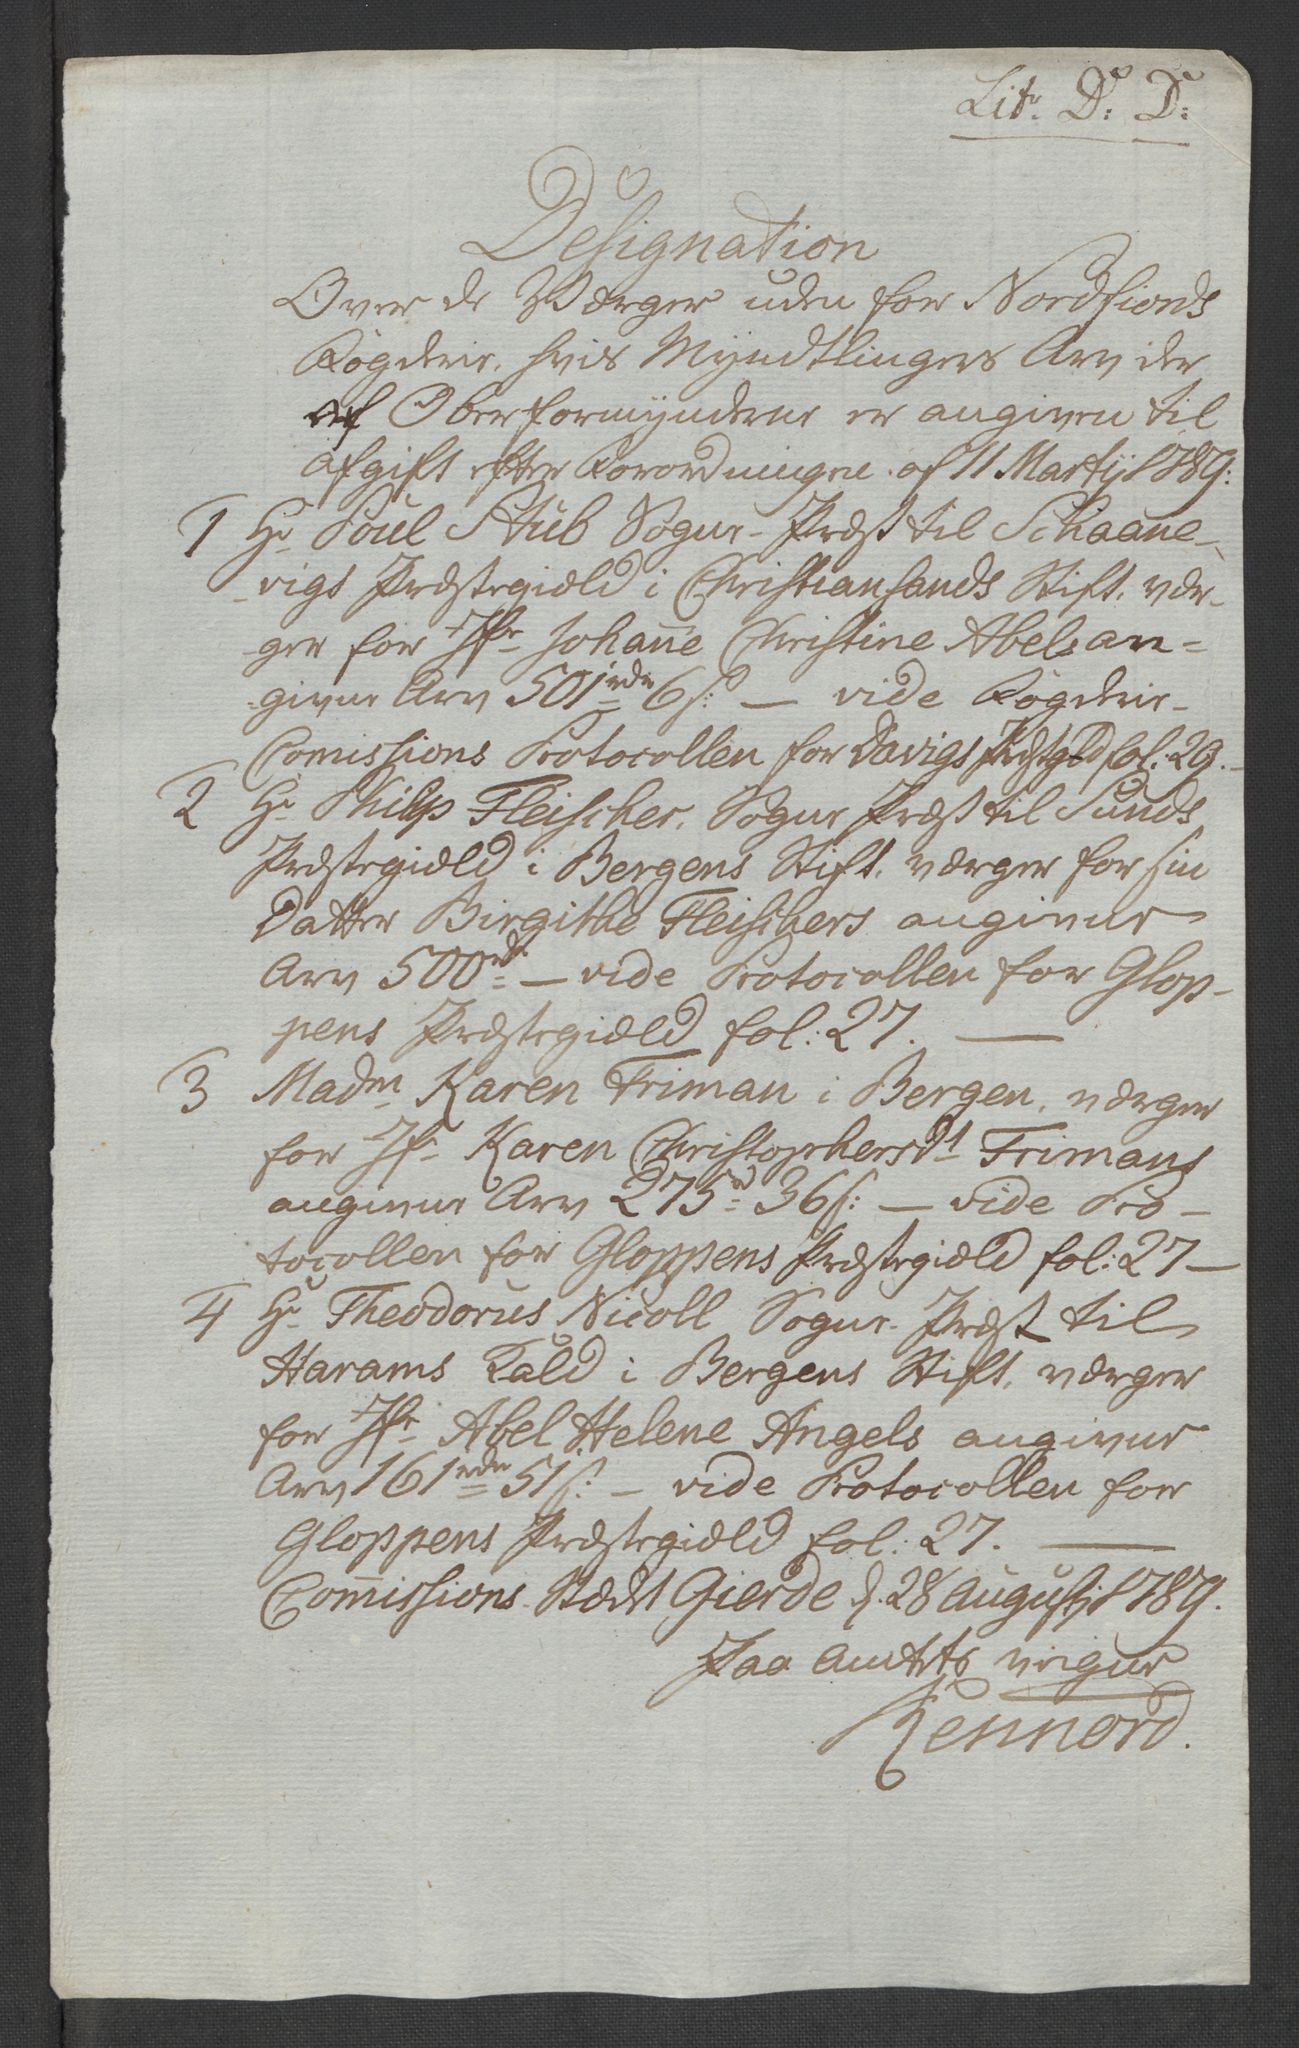 Litr. D: D:
Designation
Over de Værger uden for Nordfiords
Fögderie, hvis Myndtlingers Arv der
af Oberformynderne er angiven til
Afgift efter Forordningen af 11 Martij 1789:
1 Hr Poul Stub Sogne-Præst til Schaane-
vigs Præstegield i Christiansands Stift, vær-
ger for Jfr Johañe Christine Abels an=
givne Arv 501 rdr 6 s: — vide Fögderie-
Comissions Protocollen for Davigs Præstgld fol: 29.
2 Hr Philip Fleischer, Sogne Præst til Sunds
Præstegield i Bergens Stift, værger for sin
Datter Birgithe Fleischers angivne
Arv 500 rdr — vide Protocollen for Glop-
pens Præstegield fol: 27. —
3 Madm Karen Friman i Bergen, værger
for Jfr Karen Christophersdt Frimans
angivne Arv 275 rd 36 s: — vide Pro-
tocollen for Gloppens Præstegield fol: 27 —
4 Hr Theodorus Nicoll Sogne-Præst til
Harams Kald i Bergens Stift, værger
for Jfr Abel Helene Angels angivne
Arv 161 rdr 51 s: — vide Protocollen for
Gloppens Præstegield fol: 27. —
Com̃issions-Stædet Gierde d. 28 Augustj 1789.
Paa Amtets veigne
Rennord.